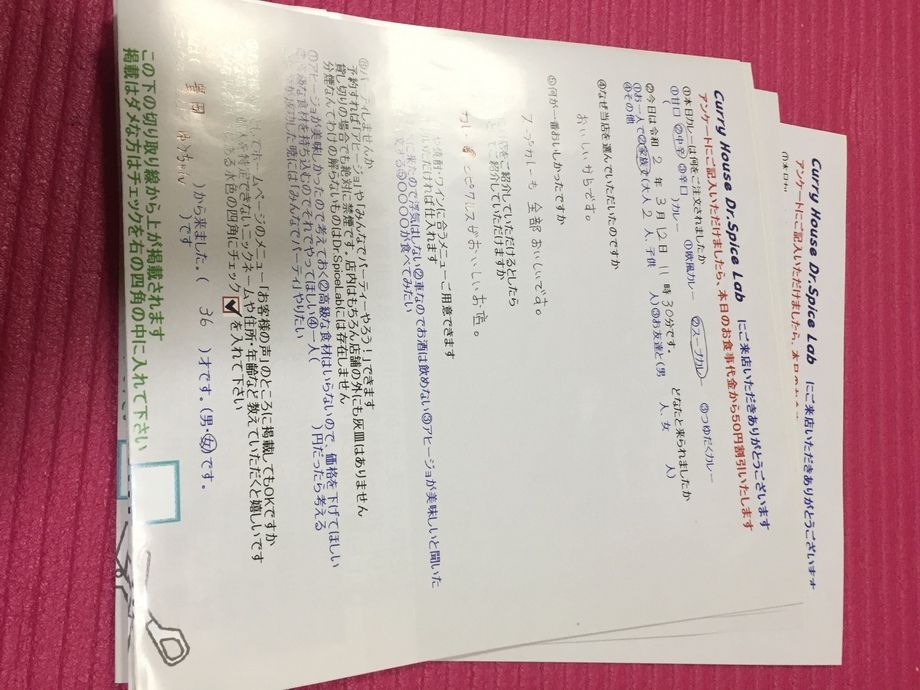 Curry House Dr.Spice Lab にご来店いただきありがとうございます
アンケートにご記入いただけましたら、本日のお食事代金から50円割引いたします
①本日カレーは何をご注文されましたか
①甘口 ②中辛 ③辛口 )カレー ①欧風カレー ②スープカレー ③つゆだくカレー
②今日は令和 2 年 3 月 12 日 11 時 30分です。 どなたと来られましたか
①お一人で②家族で(大人 2 人、子供 人)③お友達と(男 人、女 人)
④その他(
④なぜ当店を選んでいただいたのですか
おいしいからです。
⑤何が一番おいしかったですか
スープカレーも 全部 おいしいです。
ご紹介していただけるとしたら
ご紹介していただけますか
カレー ピクルスがおいしいお店。
ワインに合うメニューご用意できます
いただければ仕入れます
来たので浮気はしない②車なのでお酒は飲めない③アヒージョが美味しいと聞いた
⑤〇〇〇〇が食べてみたい
パーティしませんか
予約すれば「アヒージョ」や「みんなでパーティーやろう!」できます
貸し切りの場合でも絶対に禁煙です。店内はもちろん店舗の外にも灰皿はありません
分煙なんてわけの解らないものはDr.SpiceLabには存在しません
①アヒージョが美味しかったので考えておく②高級な食材はいらないので、価格を下げてほしい
な食材を持ち込むのでそれでやってほしい④一人( )円だったら考える
成功した時には「みんなでパーティ」やりたい
ホームページのメニュー「お客様の声」のところに掲載してもOKですか
特定できないニックネームや住所・年齢など教えていただくと嬉しいです
水色の四角にチェック☑を入れて下さい
)から来ました。( 36 )才です。(男・女)です。
)です
この下の切り取り線から上が掲載されます
掲載はダメな方はチェックを右の四角の中に入れて下さい
Curry House Dr.Spice Lab にご来店いただきありがとうございます
アンケートにご記入いただけましたら、本日の
①本日カレー